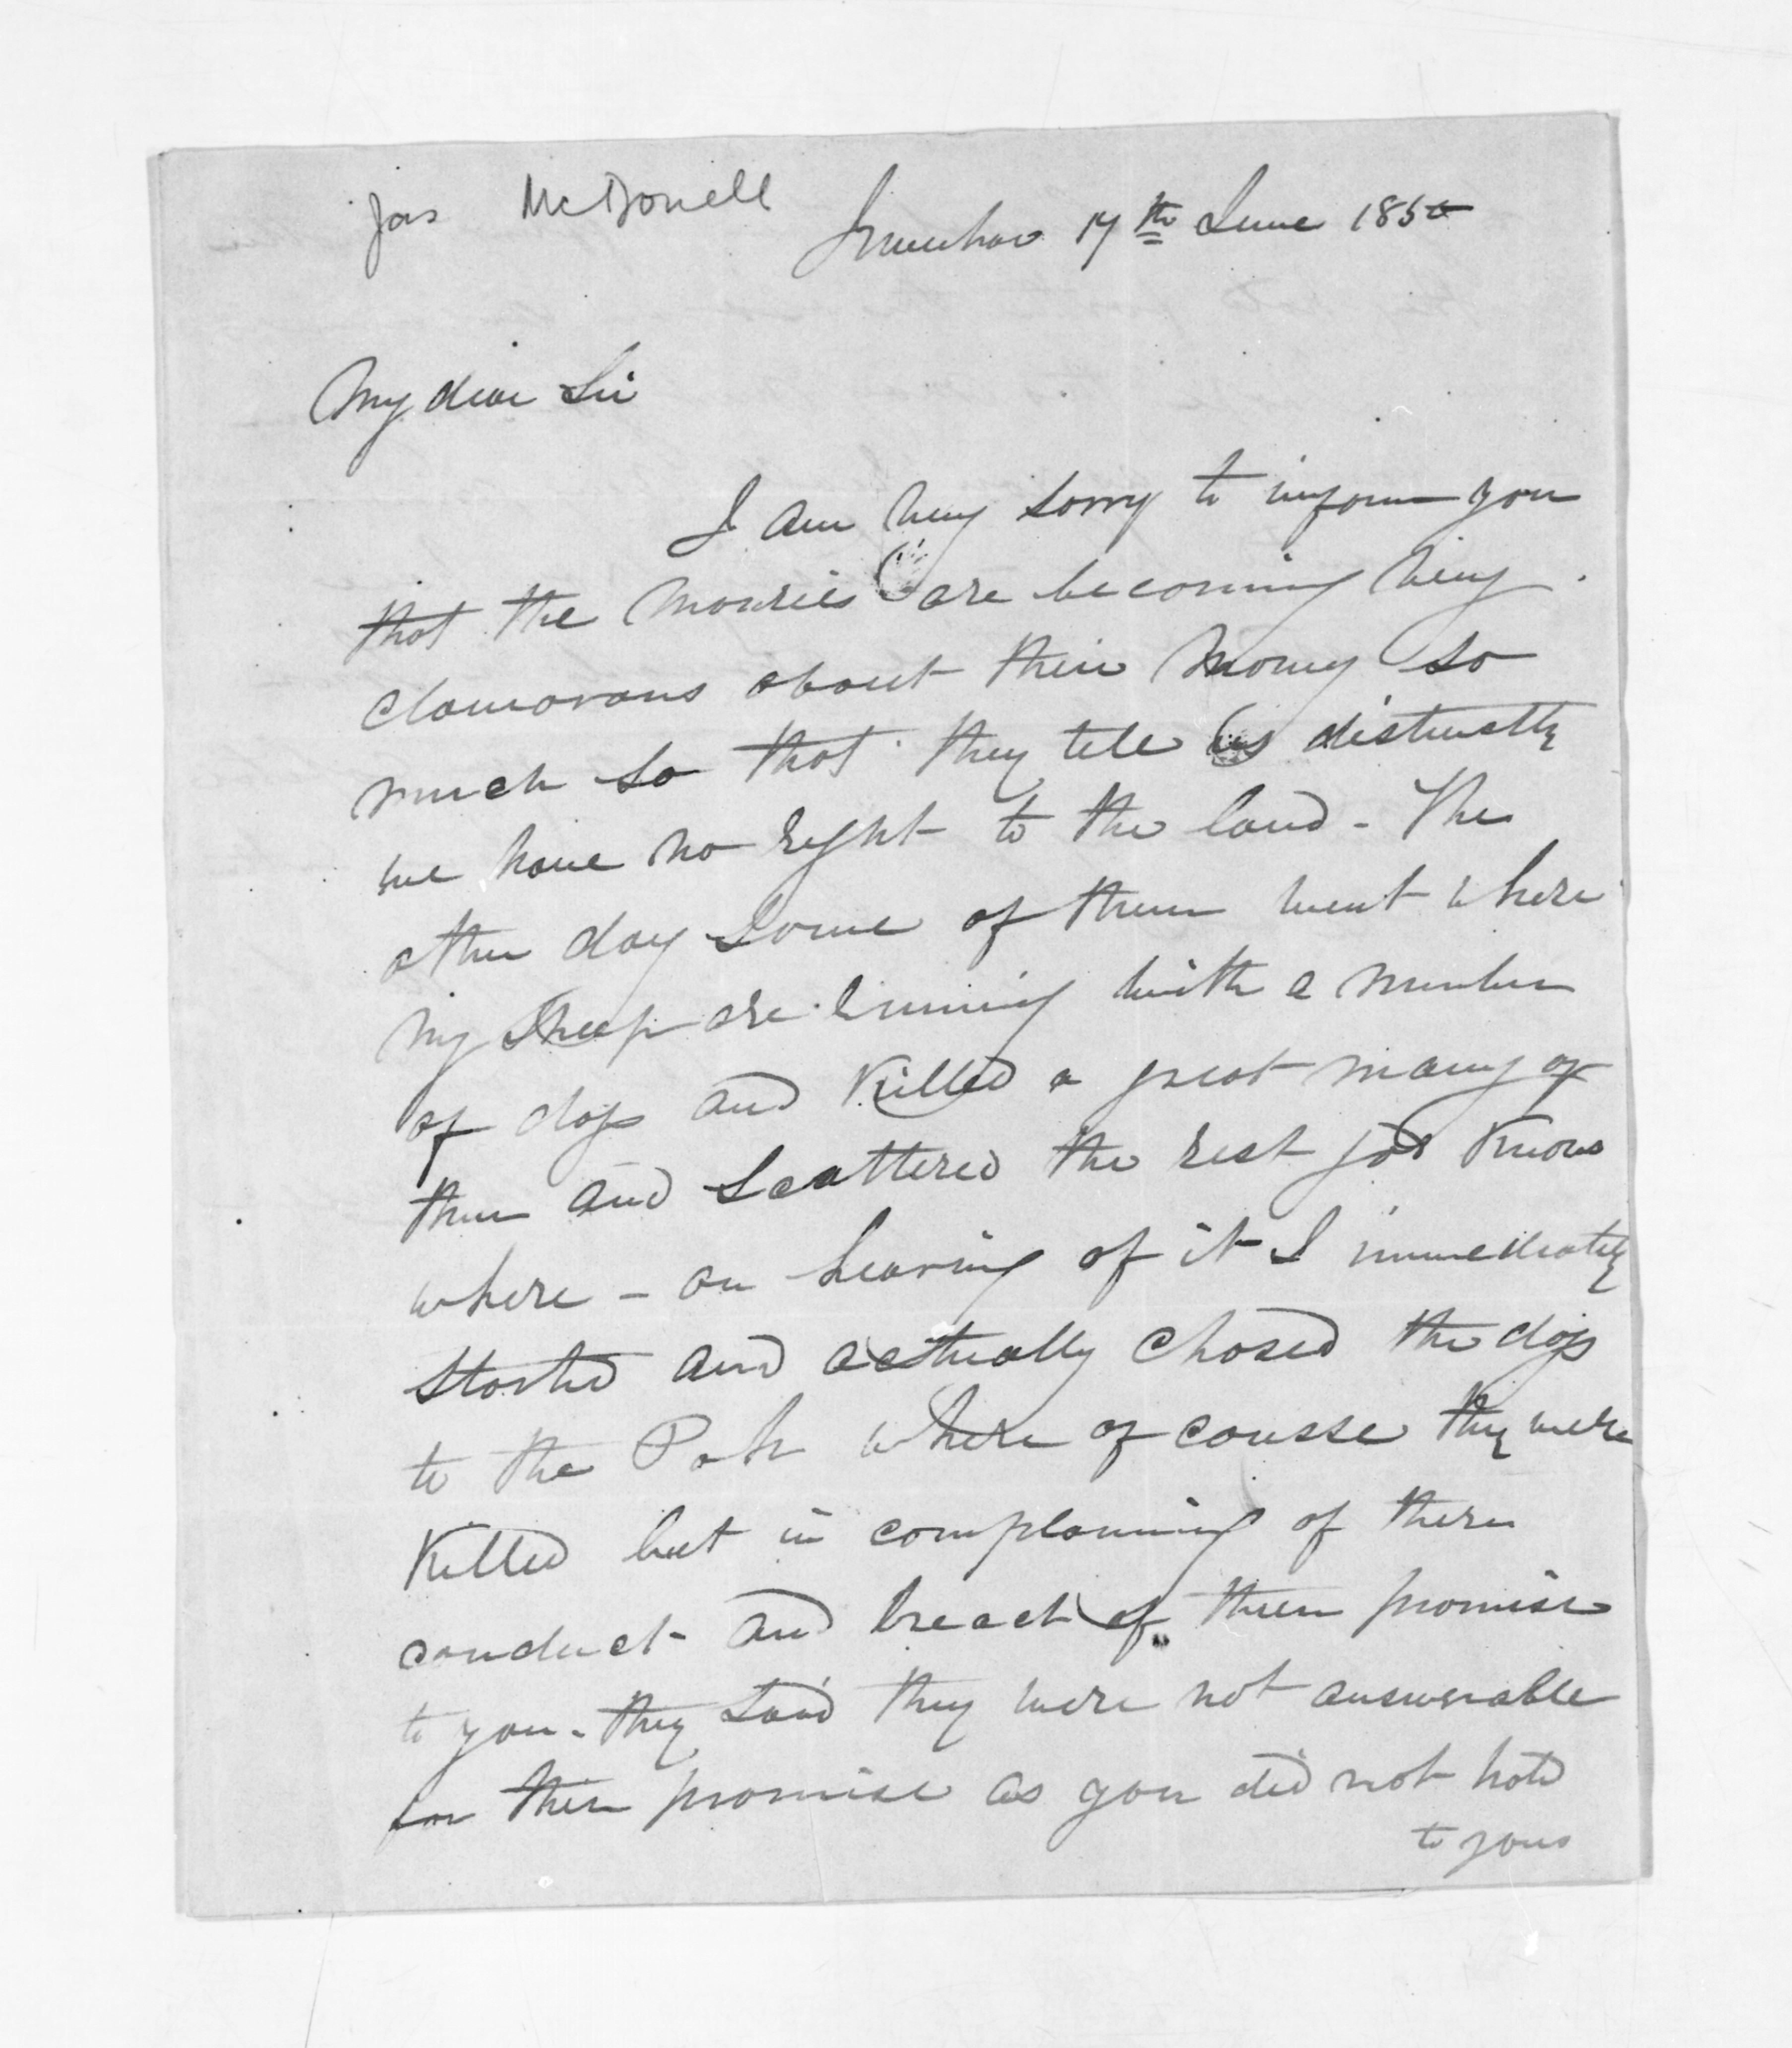 Jas McDonell
17th June 1850
My dear Sir
I am very sorry to inform you
that the mowries are becoming very
clamorous about their money so
much so that they tell us distinctly
we have no right to the land - The
other day some of them went where
my sheep are running with a number
of dogs and killed a great many of
them and scattered the rest god knows
where - on hearing of it I immediately
started and actually chased the dogs
to the Pah where of course they were
killed but in complaining of there
conduct and breach of their promise
to you - they said they were not answerable
for their promise as you did not hold
to yours